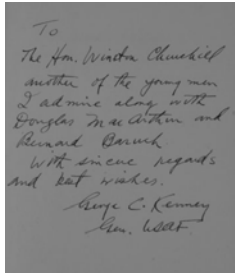 To
The Hon. Winston Churchill
another of the young men
I admire along with
Douglas MacArthur and
Bernard Baruch.
With sincere regards
and best wishes.
George C. Kenney
Gen. USAF.